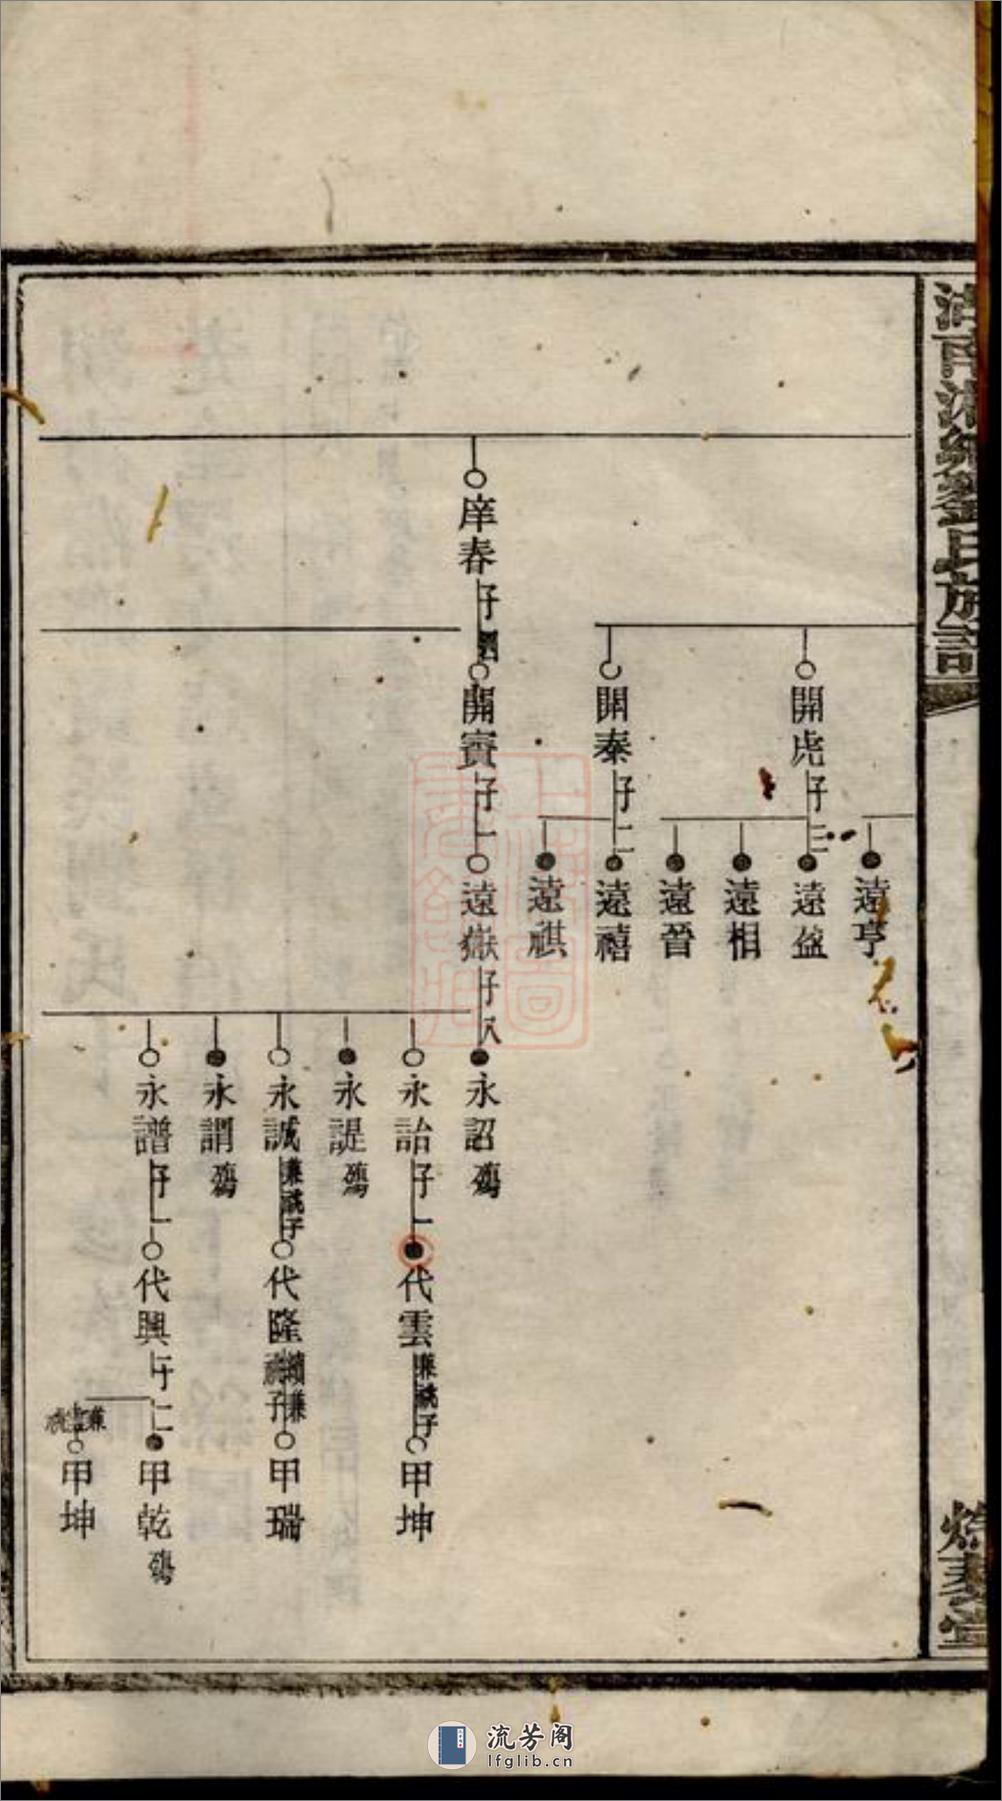 氏族譜
遠亨
開虎 子三
遠盈
遠相
遠晉
開秦 子二
遠禧
遠祺
庠春 子四
開賓 子一
遠嶽 子八
永詔 殤
永詒 子一
代雲 兼祧子
甲坤
永諟 殤
永誠 兼祧子
代隆
甲瑞
永謂 殤
永譜 子一
代興 子二
甲乾 殤
甲坤
流芳阁
lfglib.cn